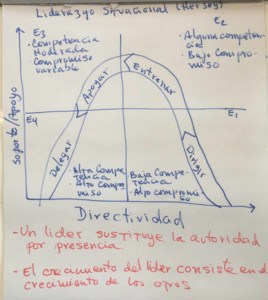 Liderazgo Situacional (Hersey)
E3
· Competencia
Moderada
· Compromiso
variable
E2
· Alguna competen-
cia
· Bajo Compro-
miso
Apoyar
Entrenar
Delegar
Dirigir
E4
E1
Soporte/Apoyo
· Alta Compe-
tencia
· Alto Compro-
miso
Baja Compe-
tencia
· Alto compromiso
Directividad
- Un líder sustituye la autoridad
por presencia.
- El crecimiento del líder consiste en el
crecimiento de los otros